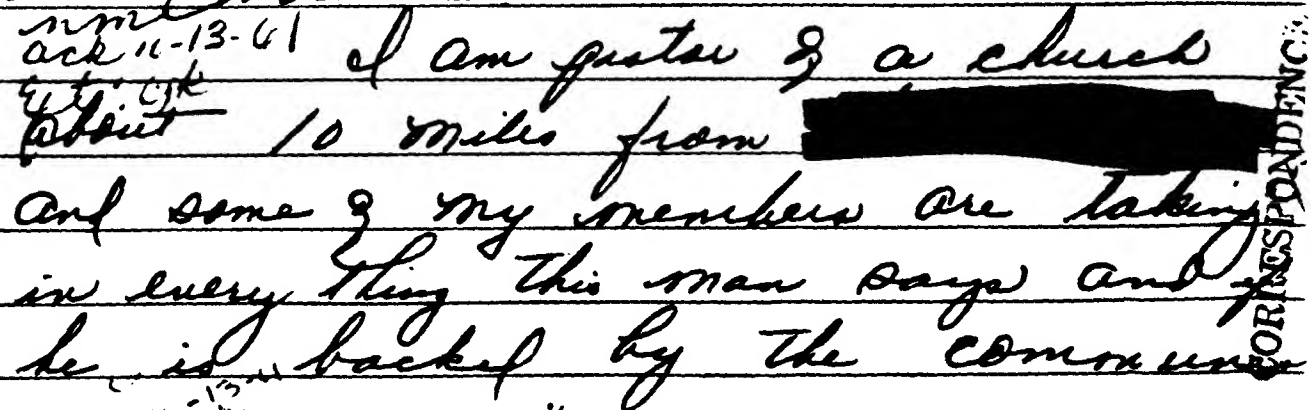 ack 11-13-61
I am pastor of a church
about 10 miles from
and some of my members are taking
in every thing this man says and if
he is backed by the commun
CORRESPONDENC